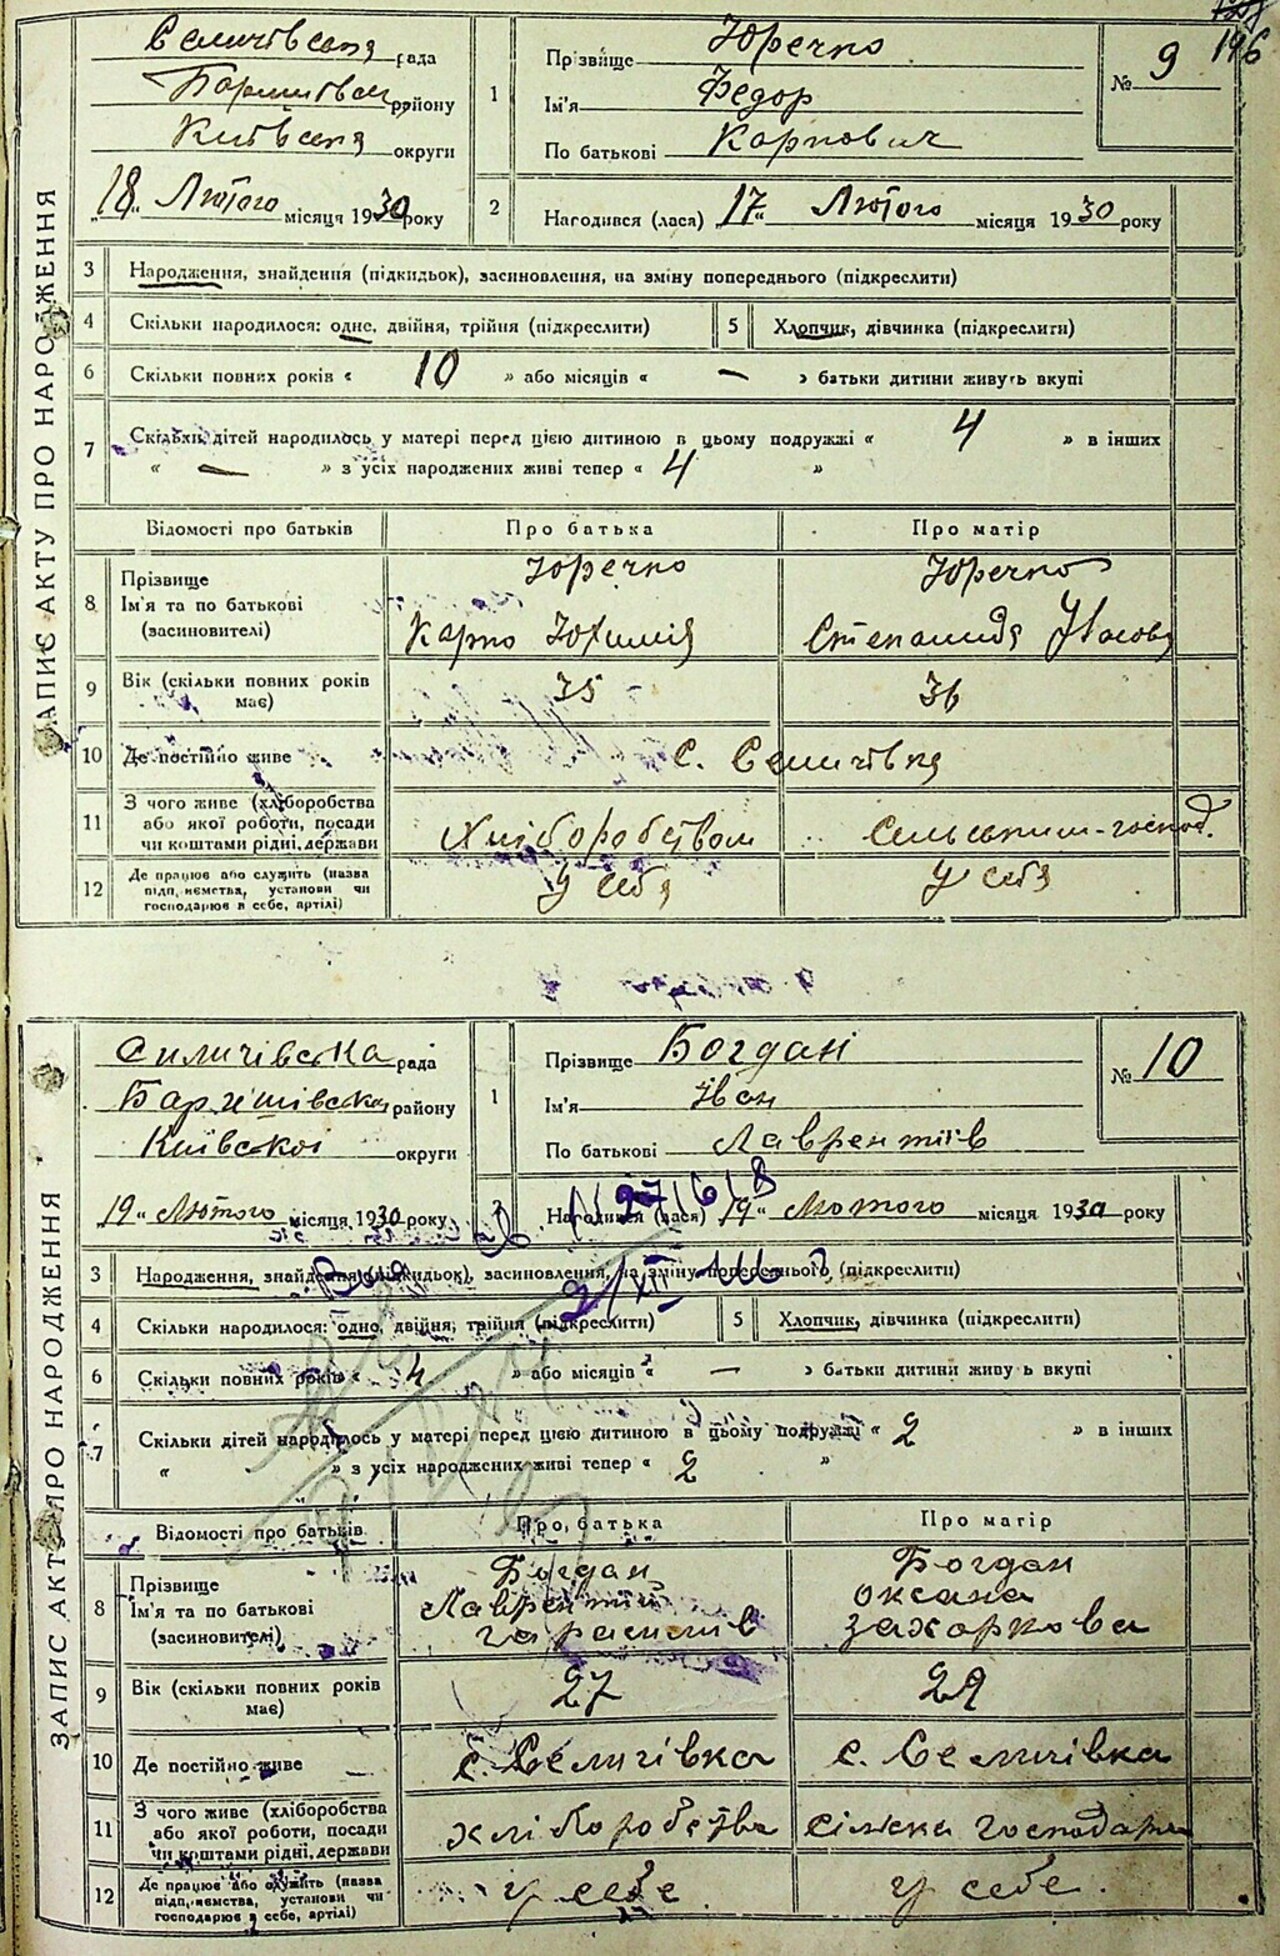 196
ЗАПИС АКТУ ПРО НАРОДЖЕННЯ
Селичівська рада
району
Київська округи
„18“ Лютого місяця 1930 року
1
Прізвище Юречко
Ім'я Федор
По батькові Карпович
№ 9
2
Народився (лася) „17“ Лютого місяця 1930 року
3 Народження, знайдення (підкидьок), засиновлення, на зміну попереднього (підкреслити)
4 Скільки народилося: одне, двійня, трійня (підкреслити) 5 Хлопчик, дівчинка (підкреслити)
6 Скільки повних років « 10 » або місяців « — » батьки дитини живуть вкупі
7 Скільки дітей народилось у матері перед цією дитиною в цьому подружжі « 4 » в інших
« — » з усіх народжених живі тепер « 4 »
Відомості про батьків Про батька Про матір
8 Прізвище Юречко Юречко
Ім'я та по батькові
(засиновителі) Карпо Юхимів Степанида
9 Вік (скільки повних років має) 35 36
10 Де постійно живе с. Селичівка
11 З чого живе (хліборобства або якої роботи, посади чи коштами рідні, держави Хліборобством Сельським-господ.
12 Де працює або служить (назва підприємства, установи чи господарює в себе, артілі) У себя У себя
ЗАПИС АКТУ ПРО НАРОДЖЕННЯ
Силичівська рада
району
Київської округи
19“ Лютого місяця 1930 року
1
Прізвище Богдані
Ім'я Іван
По батькові Лаврентіїв
№ 10
2
Народився (лася) 19“ Лютого місяця 1930 року
3 Народження, знайдення (підкидьок), засиновлення, на зміну попереднього (підкреслити)
4 Скільки народилося: одно, двійня, трійня (підкреслити) 5 Хлопчик, дівчинка (підкреслити)
6 Скільки повних років « 4 » або місяців « — » батьки дитини живу ь вкупі
7 Скільки дітей народилось у матері перед цією дитиною в цьому подружжі « 2 » в інших
« » з усіх народжених живі тепер « 2 »
Відомості про батьків Про батька Про матір
8 Прізвище Богдан Богдан
Ім'я та по батькові Лаврентій Оксана
(засиновителі) Захаркова
9 Вік (скільки повних років має) 27 29
10 Де постійно живе с. Селичівка с. Селичівка
11 З чого живе (хліборобства або якої роботи, посади чи коштами рідні, держави хліборобства сілська господари
12 Де працює або служить (назва підприємства, установи чи господарює в себе, артілі) у себе у себе.